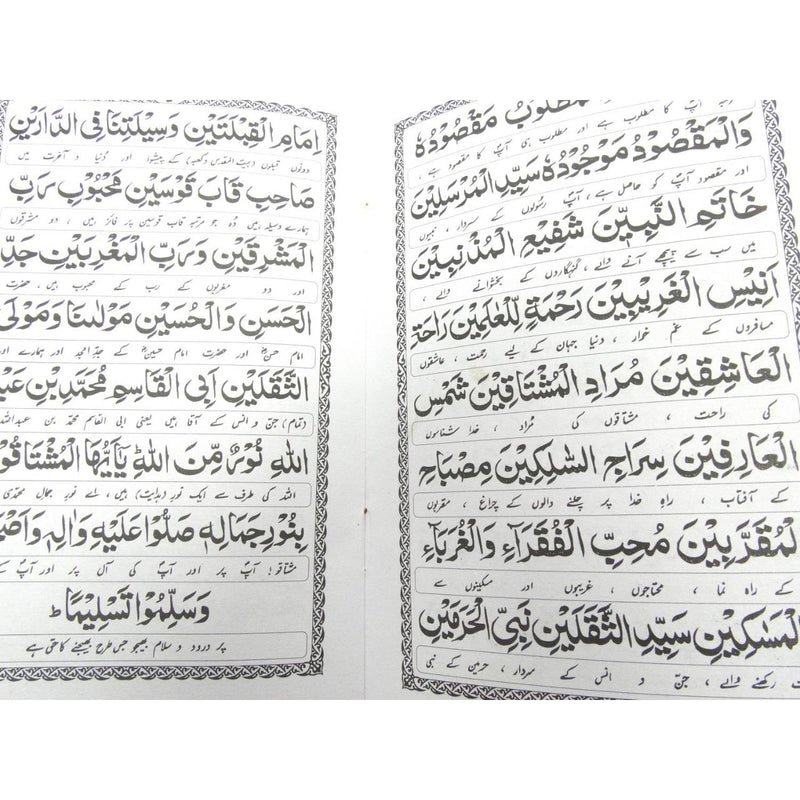 مطلوب مقصوده
وَالْمَقْصُوْدُ مَوْجُوْدُهٗ سَيِّدِ الْمُرْسَلِيْنَ
اور مقصود آپؐ کو حاصل ہے ، آپؐ رسولوں کے سردار ، نبیوں
خَاتَمِ النَّبِيِّيْنَ شَفِيْعِ الْمُذْنِبِيْنَ
میں سب سے پیچھے آنے والے ، گنہگاروں کے بخشوانے والے ،
اَنِيْسِ الْغَرِيْبِيْنَ رَحْمَةٍ لِّلْعٰلَمِيْنَ رَاحَةِ
مسافروں کے غم خوار ، دنیا جہان کے لیے رحمت ، عاشقوں
الْعَاشِقِيْنَ مُرَادِ الْمُشْتَاقِيْنَ شَمْسِ
کی راحت ، مشتاقوں کی مُراد ، خدا شناسوں
الْعَارِفِيْنَ سِرَاجِ السّٰلِكِيْنَ مِصْبَاحِ
کے آفتاب ، راہِ خدا پر چلنے والوں کے چراغ ، مقربوں
الْمُقَرَّبِيْنَ مُحِبِّ الْفُقَرَآءِ وَالْغُرَبَآءِ
کے راہ نما ، محتاجوں ، غریبوں اور مسکینوں سے
الْمَسَاكِيْنِ سَيِّدِ الثَّقَلَيْنِ نَبِيِّ الْحَرَمَيْنِ
رکھنے والے ، جنّ و انس کے سردار ، حرمین کے نبی
اِمَامِ الْقِبْلَتَيْنِ وَسِيْلَتِنَا فِي الدَّارَيْنِ
دونوں قبلوں (بیت المقدس و کعبہ) کے پیشوا اور دُنیا و آخرت میں
صَاحِبِ قَابَ قَوْسَيْنِ مَحْبُوْبِ رَبِّ
ہمارے وسیلہ ہیں وُہ جو مرتبہ قاب قوسین پر فائز ہیں ، دو مشرقوں
الْمَشْرِقَيْنِ وَرَبِّ الْمَغْرِبَيْنِ جَدِّ
اور دو مغربوں کے رب کے محبوب ہیں ، حضرت
الْحَسَنِ وَالْحُسَيْنِ مَوْلٰىنَا وَمَوْلَى
امام حسنؓ اور حضرت امام حسینؓ کے جدِّ امجد اور ہمارے اور
الثَّقَلَيْنِ اَبِي الْقَاسِمِ مُحَمَّدِ بْنِ
(تمام) جنّ و انس کے آقا ہیں یعنی ابی القاسم محمدؐ بن عبداللہ
اللّٰهِ نُوْرٍ مِّنْ نُّوْرِ اللّٰهِ يٰٓاَيُّهَا
اللہ کی طرف سے ایک نور (ہدایت) ہیں ، اے نورِ جمالِ محمّدی
بِنُوْرِ جَمَالِهٖ صَلُّوْا عَلَيْهِ وَاٰلِهٖ
مشتاقو! آپؐ پر اور آپؐ کی آل پر اور آپؐ کے
وَسَلِّمُوْا تَسْلِيْمًا ط
پر درود و سلام بھیجو جس طرح بھیجنے کا حق ہے